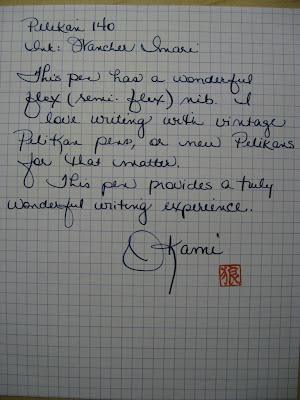 Pelikan 140
Ink: Stancher Imari
This pen has a wonderful
flex (semi-flex) nib. I
love writing with vintage
Pelikan pens, or new Pelikans
for that matter.
This pen provides a truly
wonderful writing experience.
Okami
狼